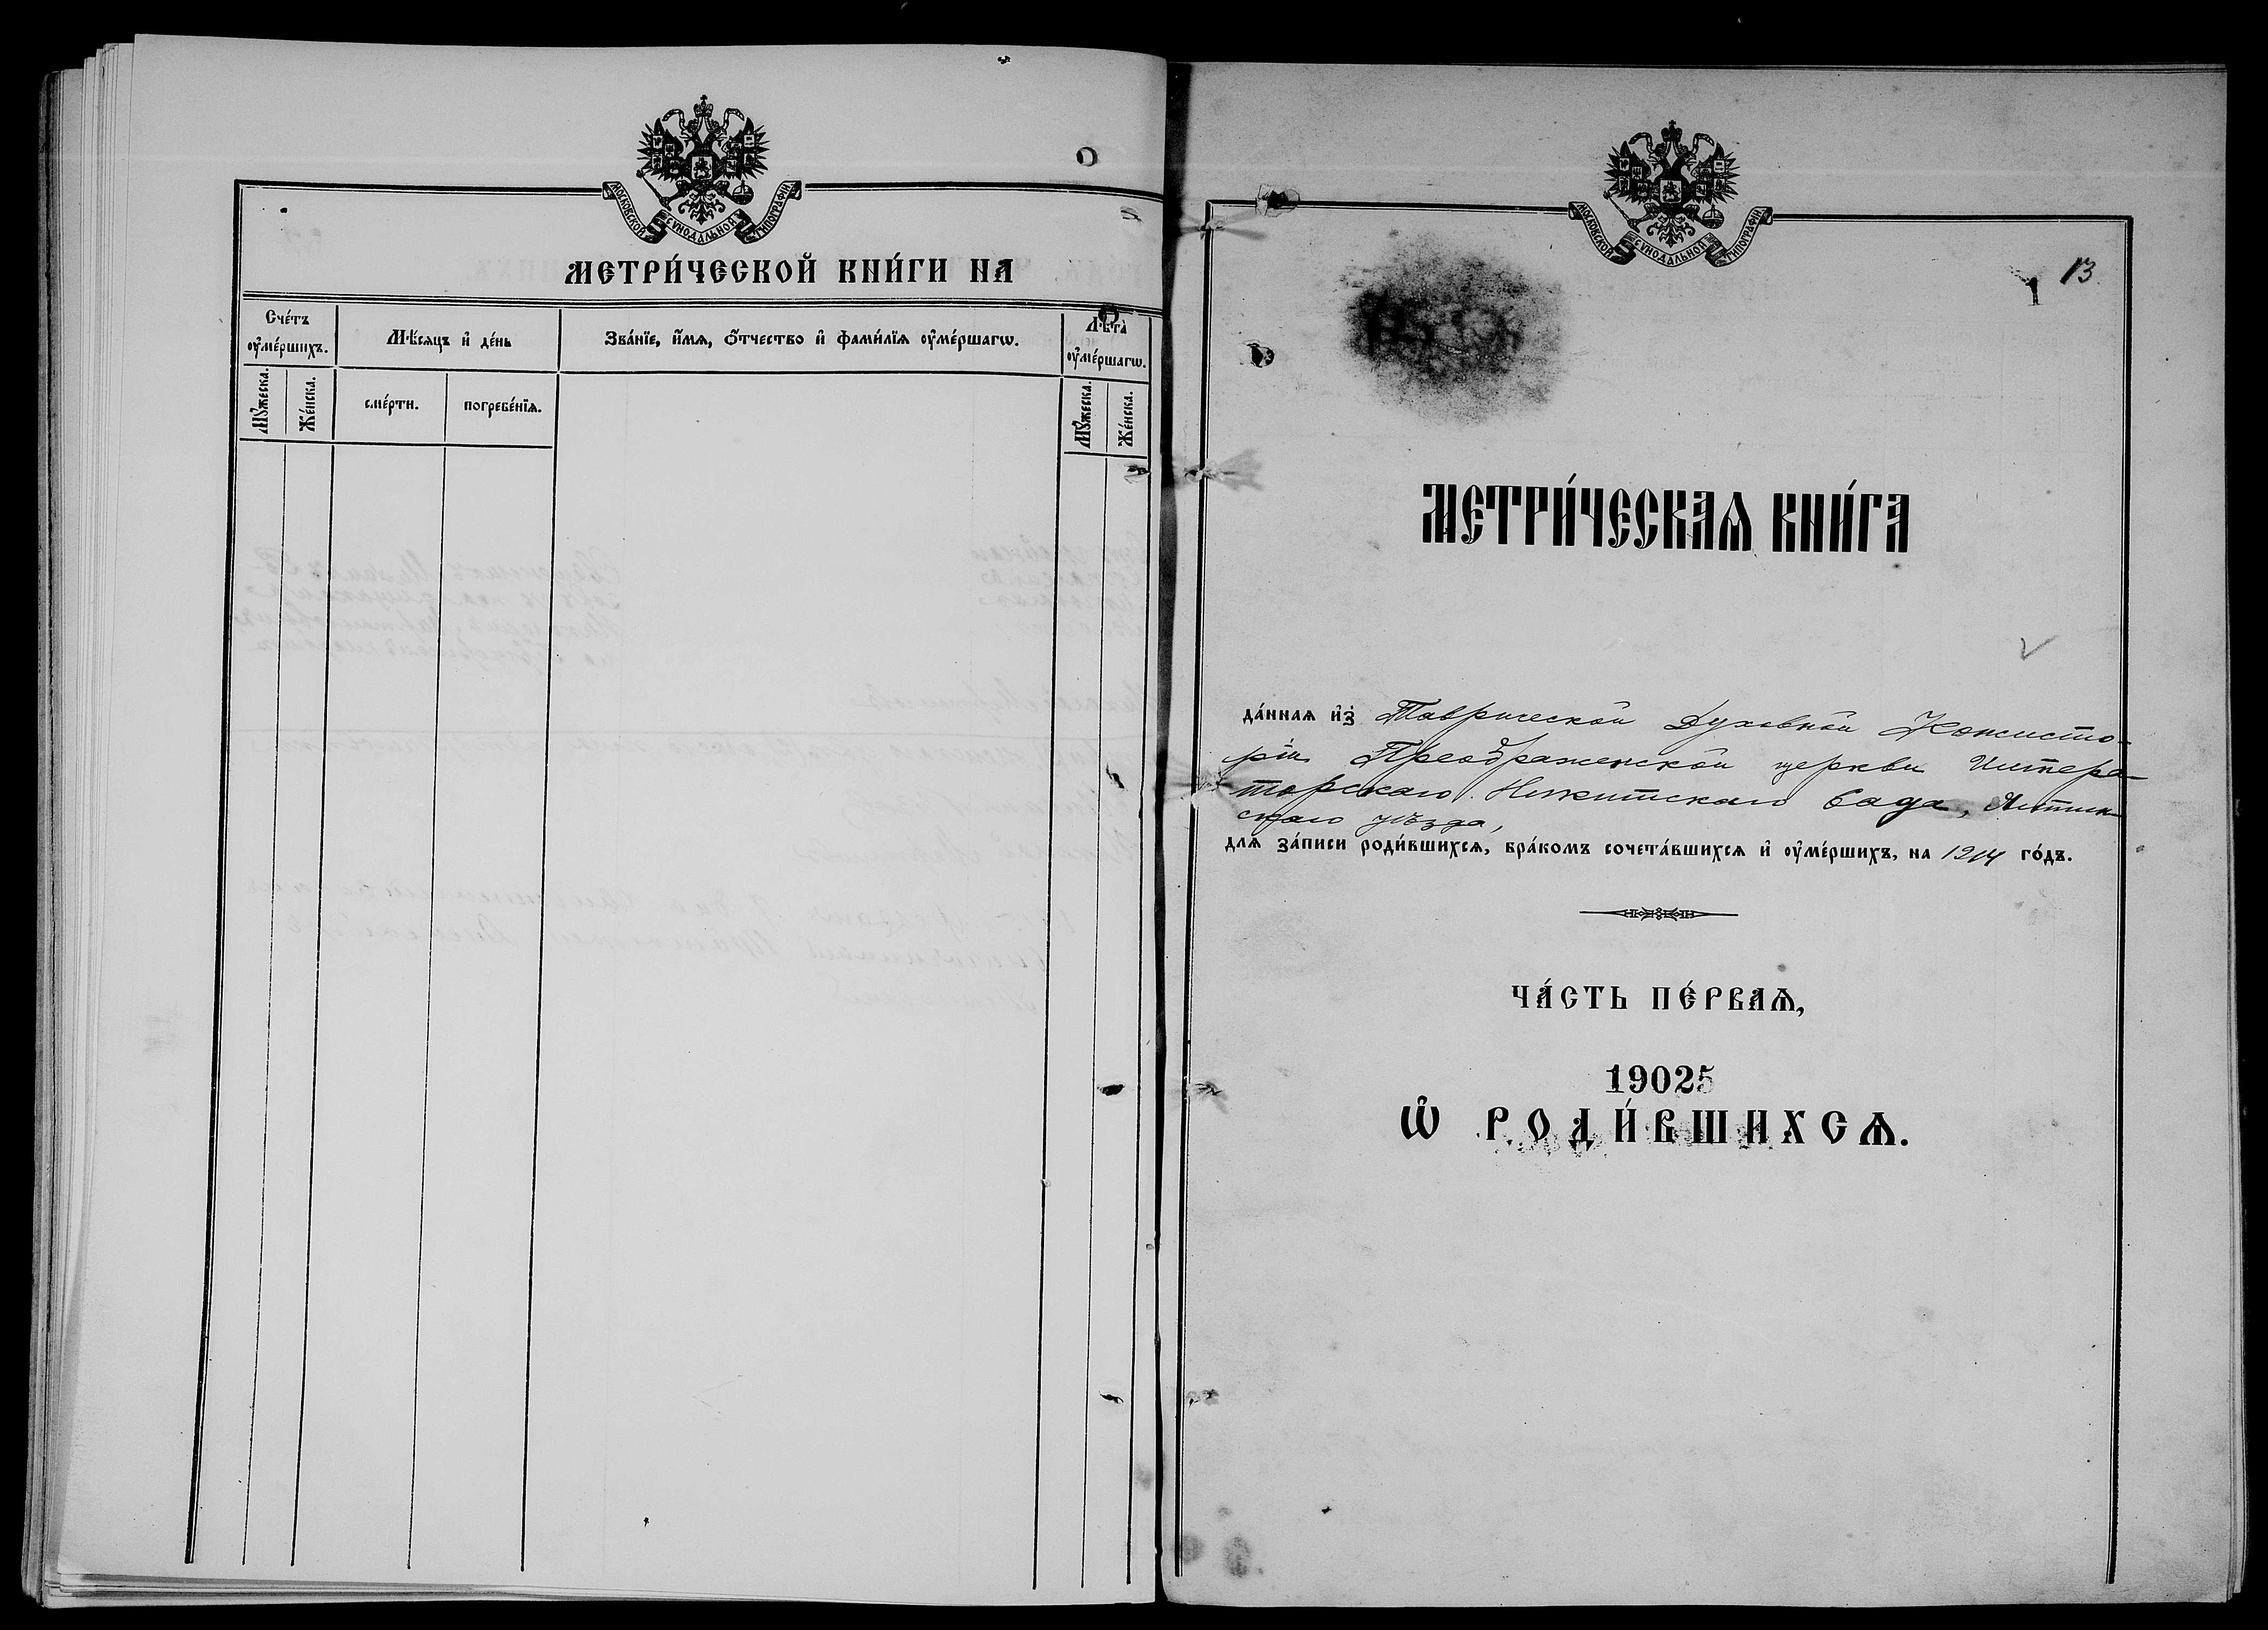 МОСКОВСКОЙ СѴНОДАЛЬНОЙ ТИПОГРАФІИ
МЕТРИ́ЧЕСКОЙ КНИ́ГИ НА
Сче́тъ ᲂу҆ме́ршихъ.
Мѣ́сяцъ и҆ де́нь
Зва́нїе, и҆́мѧ, ѻ҆́тчество и҆ фами́лїѧ ᲂу҆ме́ршагѡ.
Лѣ́та ᲂу҆ме́ршагѡ.
Мꙋ́жеска.
Же́нска.
сме́рти.
погребе́нїѧ.
Мꙋ́жеска.
Же́нска.
МОСКОВСКОЙ СѴНОДАЛЬНОЙ ТИПОГРАФІИ
1 13
МЕТРИ́ЧЕСКАѦ КНИ́ГА
да́ннаѧ и҆з̾ Таврической Духовной Консисто-
ріи Преображенской церкви Импера-
торскаго Никитскаго Сада, Ялтин-
скаго уѣзда,
длѧ за́писи роди́вшихсѧ, бра́комъ сочета́вшихсѧ и҆ ᲂу҆ме́ршихъ, на 1914 го́дъ.
ЧА́СТЬ ПЕ́РВАѦ,
19025
Ѡ҆ РОДИ́ВШИХСѦ.